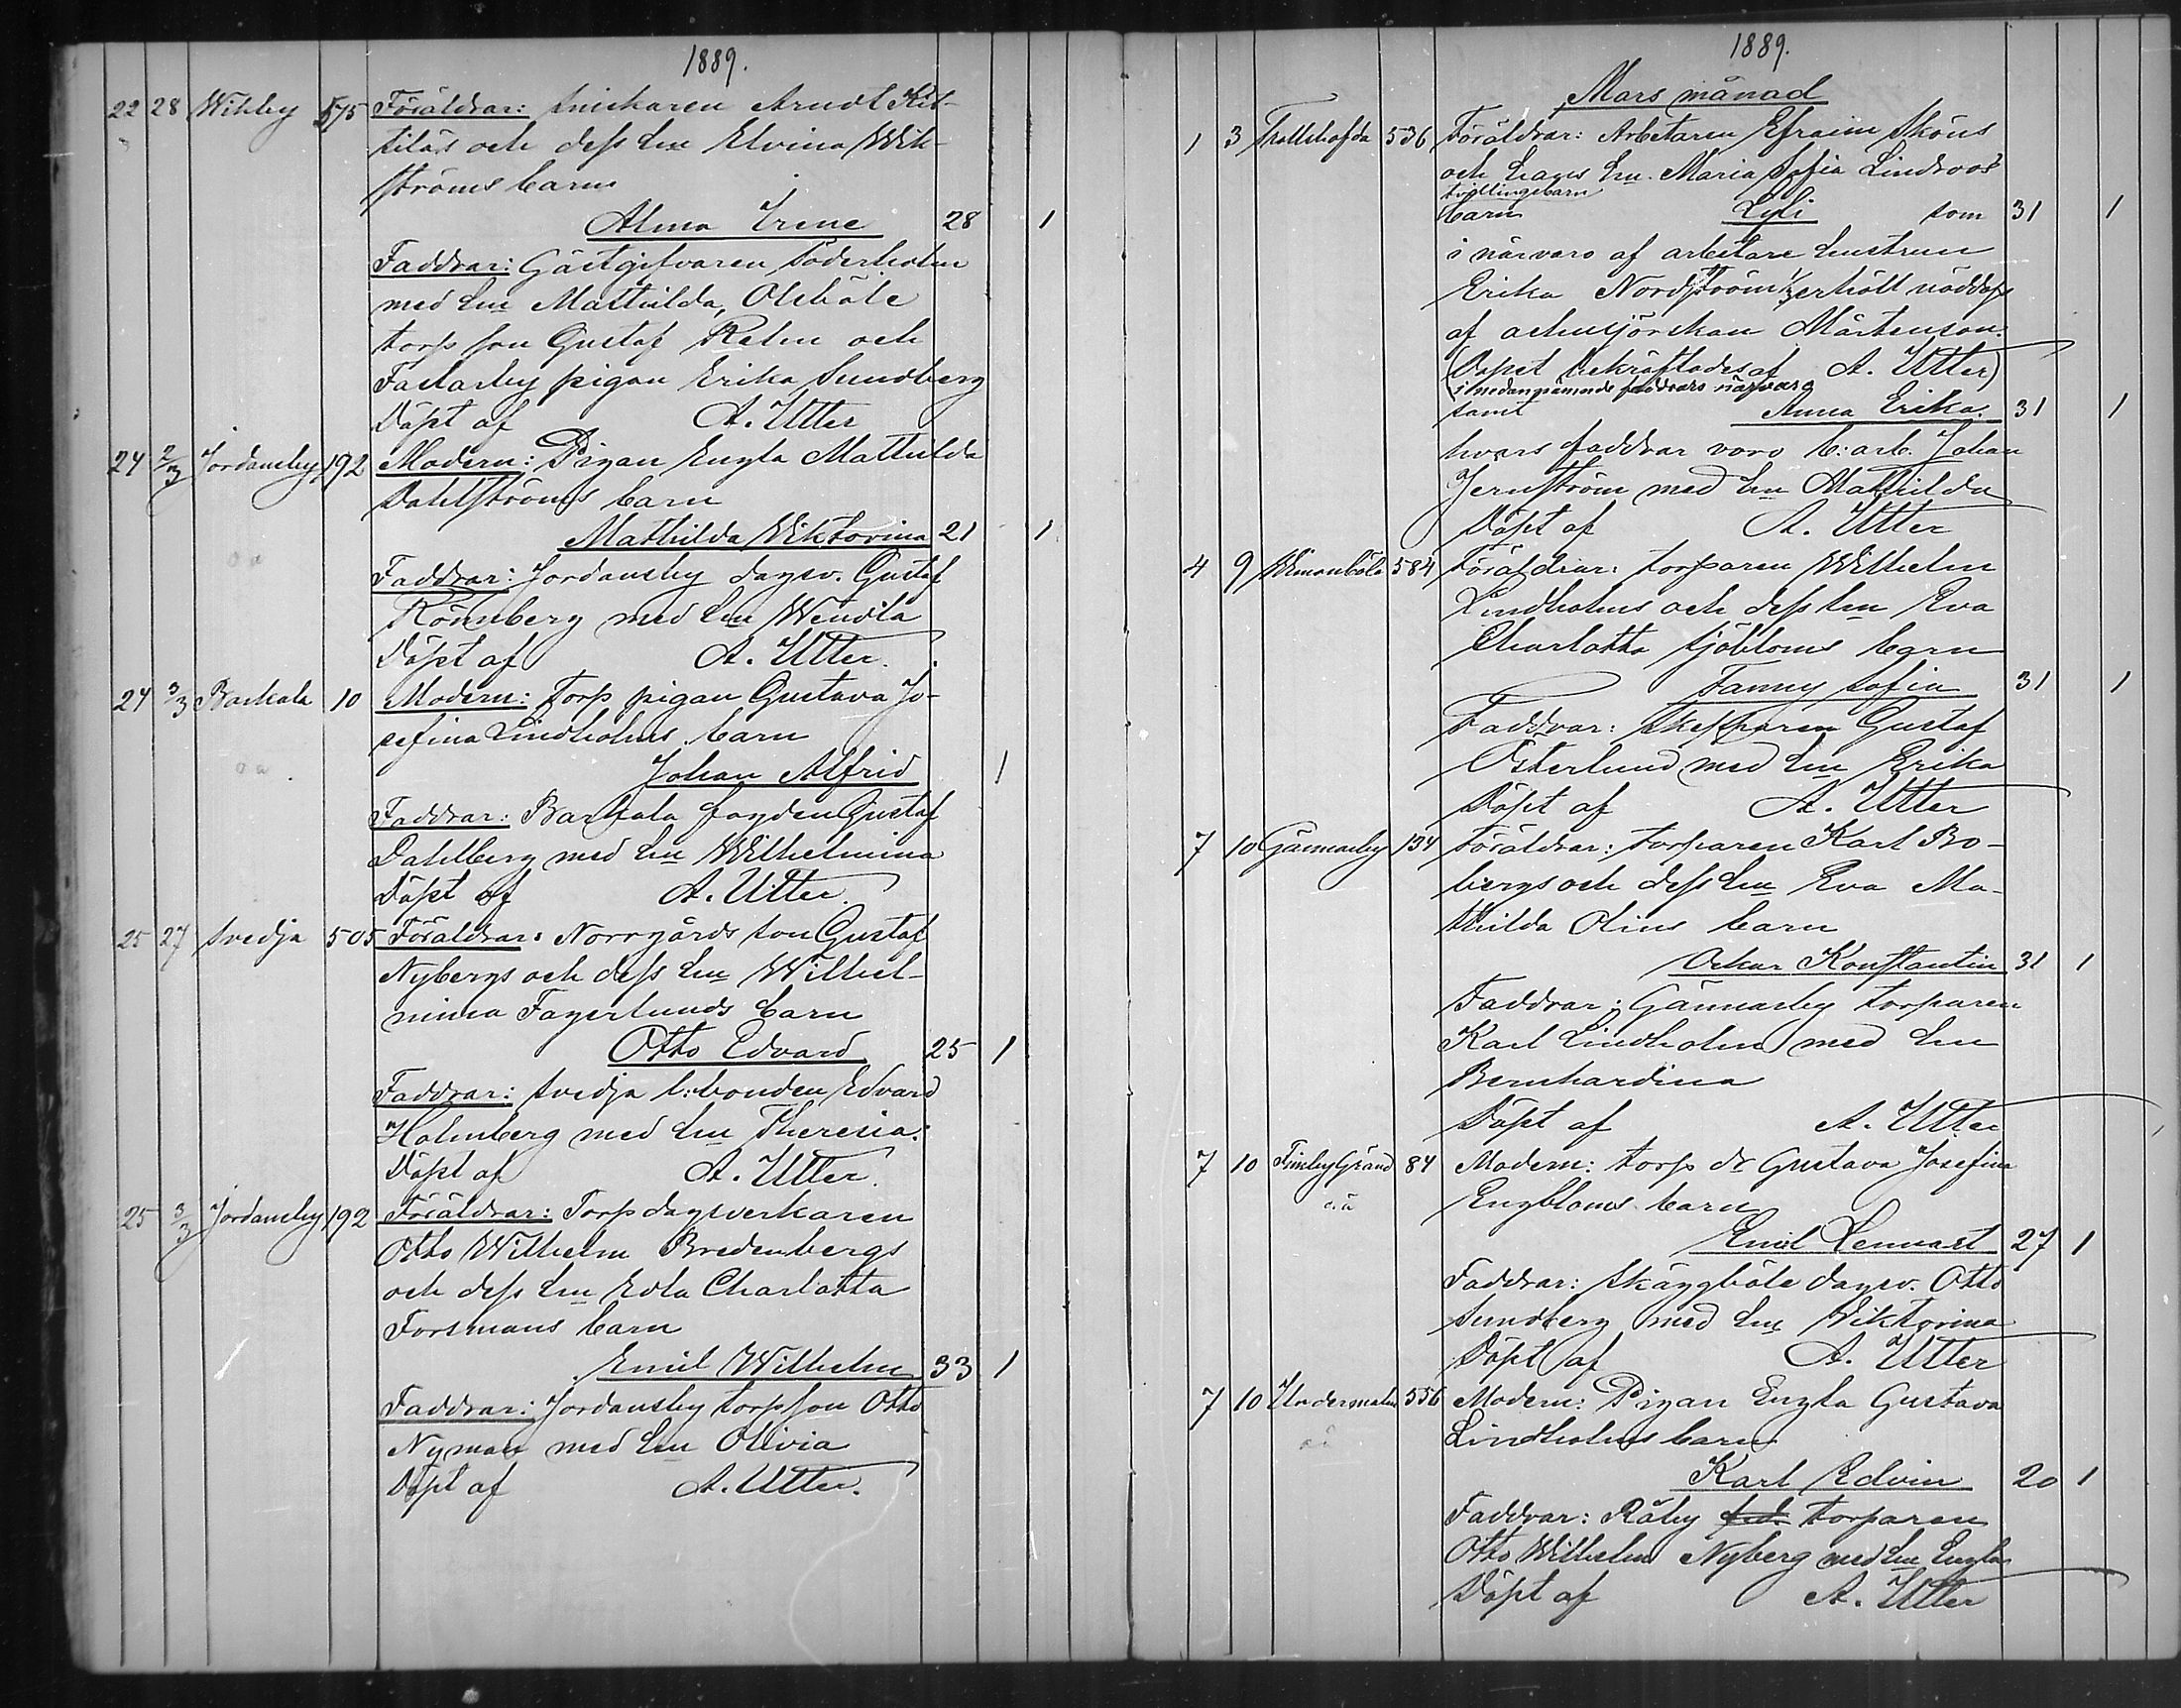 1889.
22 28 Wikby 575 Föräldrar: Snickaren Arndt Kit-
tiläs och dess hu Elvina Wik-
ströms barn
Alma Irene 28 1
Faddrar: Gästgifvaren Söderholm
med hu Mathilda, Olsböle
torps son Gustaf Relm och
Fastarby pigan Erika Sundberg
Döpt af A. Utter
24 2/3 Jordansby 192 Modern: Pigan Engla Mathilda
Dahlströms barn
Mathilda Viktorina 21 1
oä
Faddrar: Jordansby dagsv. Gustaf
Rönnberg med hu Wendla
Döpt af A. Utter.
24 3/3 Baskala 10 Modern: Torp pigan Gustava Jo-
sefina Lindholms barn
oä
Johan Alfrid 1
Faddrar: Baskala fogden Gustaf
Dahlberg med hu Wilhelmina
Döpt af A. Utter.
25 27 Svedja 505 Föräldrar: Norrgårds son Gustaf
Nybergs och dess hu Wilhel-
mina Fagerlunds barn
Otto Edvard 25 1
Faddrar: Svedja b:bonden Edvard
Holmberg med hu Theresia.
Döpt af A. Utter.
25 3/3 Jordansby 192 Föräldrar: Torpdagsverkaren
Otto Wilhelm Bredenbergs
och dess hu Edla Charlotta
Forsmans barn
Emil Wilhelm 33 1
Faddrar: Jordansby torpson Otto
Nyman med hu Olivia
Döpt af A. Utter.
1889.
Mars månad
1 3 Trollshofda 536 Föräldrar: Arbetaren Efraim Sköns
och hans hu. Maria Sofia Lindroos
tvillingebarn
barn Lyli som 31 1
i närvaro af arbetare hustrun
Erika Nordström erhöll nöddop
af ackusjörskan Mårtenson.
(Dopet bekräftades af A. Utter)
i nedannämnde faddrars närvaro
samt Anna Erika. 31 1
hvars faddrar voro b:arb. Johan
Jernström med hu Mathilda
Döpt af A. Utter
4 9 Simonböle 584 Föräldrar: torparen Wilhelm
Lindholms och dess hu Eva
Charlotta Sjöbloms barn
Fanny Sofia 31 1
Faddrar: Skepparen Gustaf
Österlund med hu Erika
Döpt af A. Utter
7 10 Gännarby 134 Föräldrar: torparen Karl Bo-
bergs och dess hu Eva Ma-
thilda Olins barn
Oskar Konstantin 31 1
Faddrar: Gännarby torparen
Karl Lindholm med hu
Bernhardina
Döpt af A. Utter
7 10 Finby Gränd 84 Modern: torp dr Gustava Josefina
oä
Engbloms barn
Emil Lennart 27 1
Faddrar: Skäggböle dagsv. Otto
Sundberg med hu Viktorina
Döpt af A. Utter
7 10 Undermalm 556 Modern: Pigan Engla Gustava
oä
Lindholms barn
Karl Edvin 20 1
Faddrar: Råby torparen
Otto Wilhelm Nyberg med hu Engla
Döpt af A. Utter